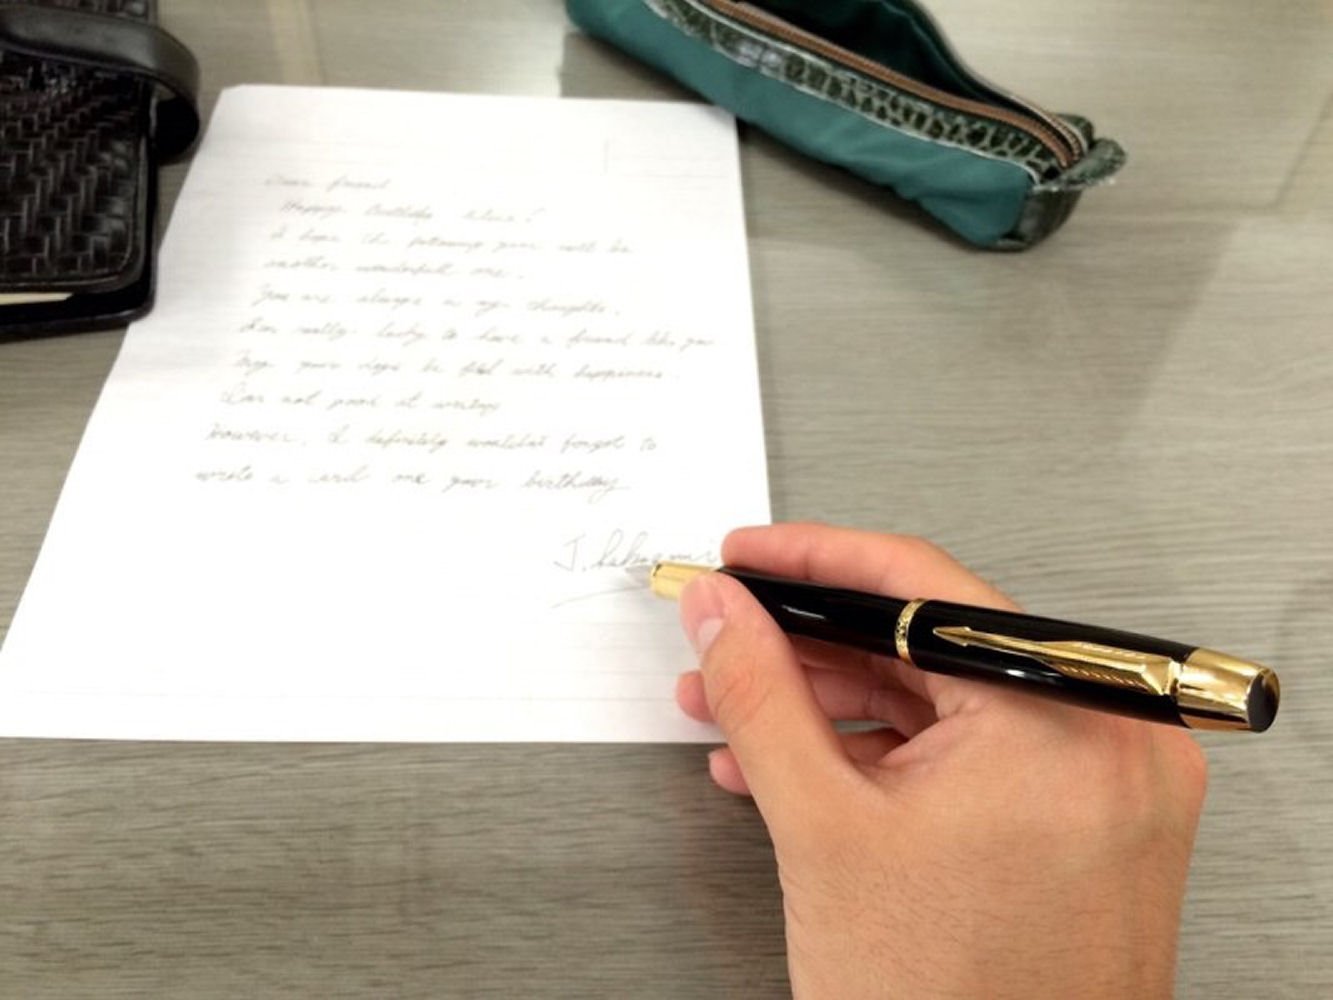 Dear friend
Happy Birthday
I hope the following year will be
another wonderfull one.
You are always in my thoughts.
I'm really lucky to have a friend like you
May your days be with happiness.
I'm not good at writing
However, I definitely wouldn't forget to
wrote a card one your birthday
J.